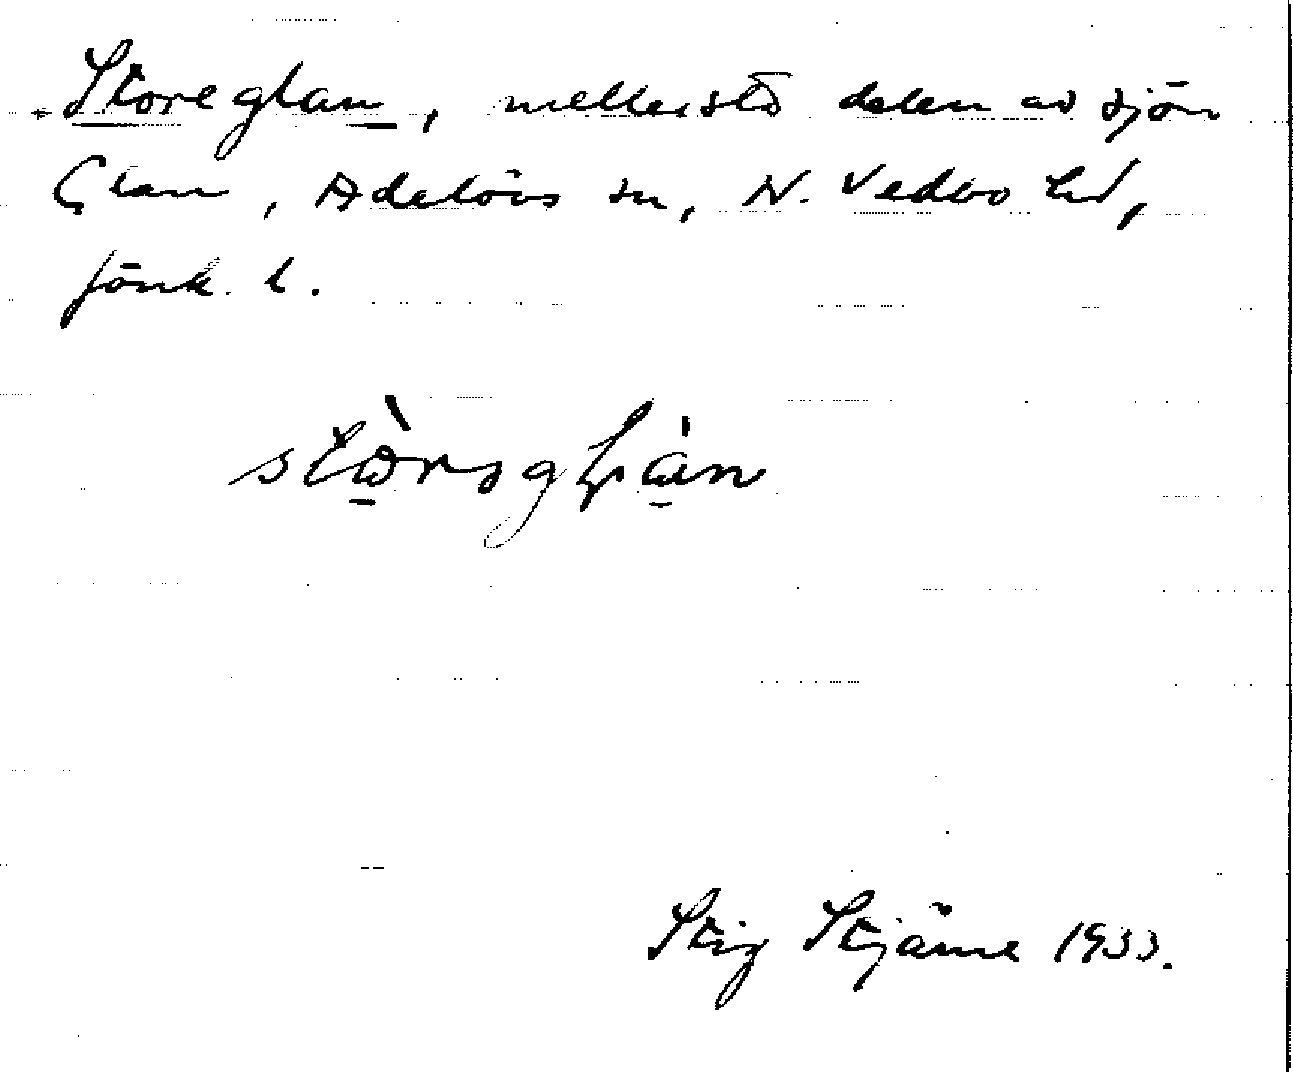 Storeglan, mellersta delen av sjön
Glan, Adelövs sn, N. Vedbo hd,
Jönk. l.
Stig Stjärne 1933.